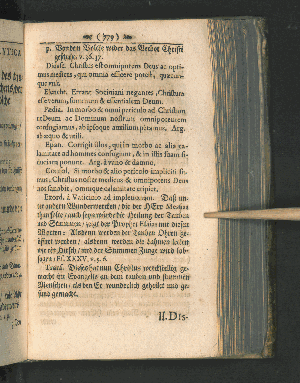 ( 779 )
p. Von dem Volcke wider das Verbot Christi
geschehe/ v. 36. 37.
Didasc. Christus est omnipotens Deus ac opti-
mus medicus, qui omnia efficere potest, quæcun-
que vult.
Elench. Errant Sociniani negantes, Christum
esse verum, summum & essentialem Deum.
Pædia. In morbo & omni periculo ad Christum
ut Deum, ac Dominum nostrum omnipotentem
confugiamus, ab ipsoque auxilium petamus. Arg.
ab æquo & utili.
Epan. Corrigit illos, qui in morbo ac alia ca-
lamitate ad homines confugiunt, & in illis suam fi-
duciam ponunt. Arg. à vano & damno.
Consol. Si morbo & alio periculo impliciti su-
mus, Christus noster medicus & omnipotens Deus
nos sanabit, omnique calamitate eripiet.
Exord. à Vaticinio ad implementum. Daß un-
ter andern Wunderwercken/ die der HErr Messias
thun solte/ auch seyn würde die Heilung der Tauben
und Stummen/ zeiget der Prophet Esaias mit diesen
Worten: Alsdenn werden der Tauben Ohren ge-
öffnet werden/ alsdenn werden die Lahmen lecken
wie ein Hirsch/ und der Stummen Zunge wird lob-
sagen/ c. XXXV, v. 5. 6.
macht im Evangelio an dem tauben und stummen
Menschen/ als den Er wunderlich geheilet und ge-
sund gemacht.
II. DIS-